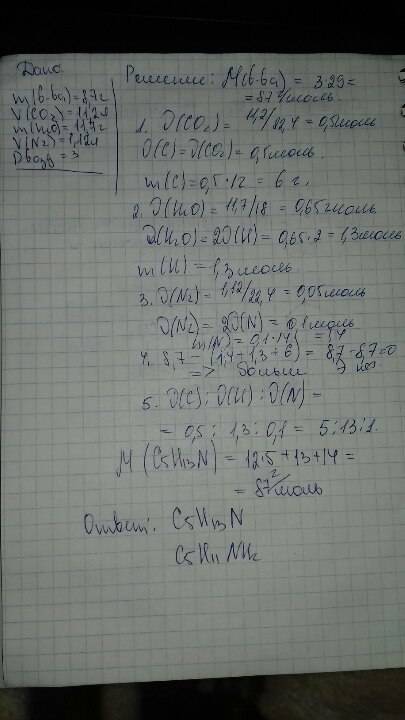 Дано
m(в-ва) = 8,7 г
V(CO2) = 11,2 л
m(H2O) = 11,7 г
V(N2) = 1,12 л
Dвозд = 3
Решение: M(в-ва) = 3·29 =
= 87 г/моль.
1. ϑ(CO2) = 11,2/22,4 = 0,5 моль
ϑ(C) = ϑ(CO2) = 0,5 моль.
m(C) = 0,5·12 = 6 г.
2. ϑ(H2O) = 11,7/18 = 0,65 моль
ϑ(H2O) = 2ϑ(H) = 0,65·2 = 1,3 моль
m(H) = 1,3 моль
3. ϑ(N2) = 1,12/22,4 = 0,05 моль
ϑ(N2) = 2ϑ(N) = 0,1 моль
m(N) = 0,1·14 = 1,4
4. 8,7 - (1,4 + 1,3 + 6) = 8,7 - 8,7 = 0
=> больше Э нет
5. ϑ(C) : ϑ(H) : ϑ(N) =
= 0,5 : 1,3 : 0,1 = 5:13:1.
M (C5H13N) = 12·5 + 13 + 14 =
= 87 г/моль
Ответ: C5H13N
C5H11NH2